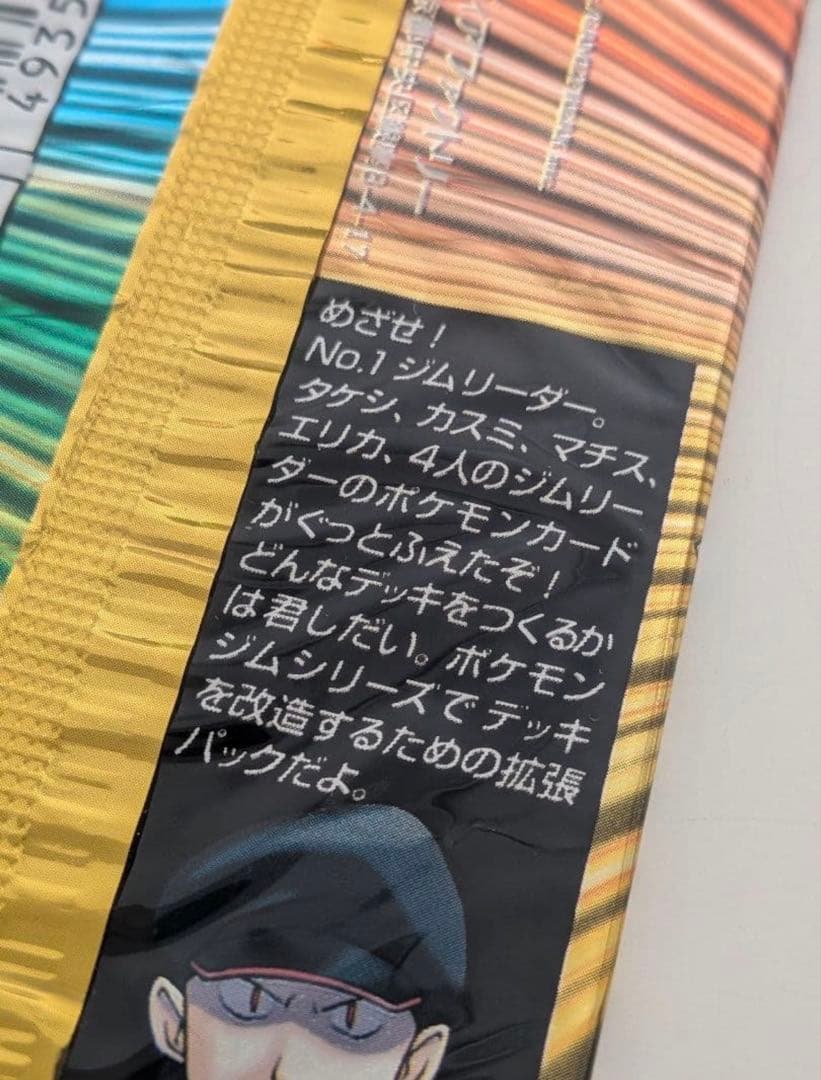 4935
アファクトリー
8-4-17
めざせ！
No.1 ジムリーダー。
タケシ、カスミ、マチス、
エリカ、4人のジムリー
ダーのポケモンカード
がぐっとふえたぞ！
どんなデッキをつくるか
は君しだい。ポケモン
ジムシリーズで デッキ
を改造するための拡張
パックだよ。